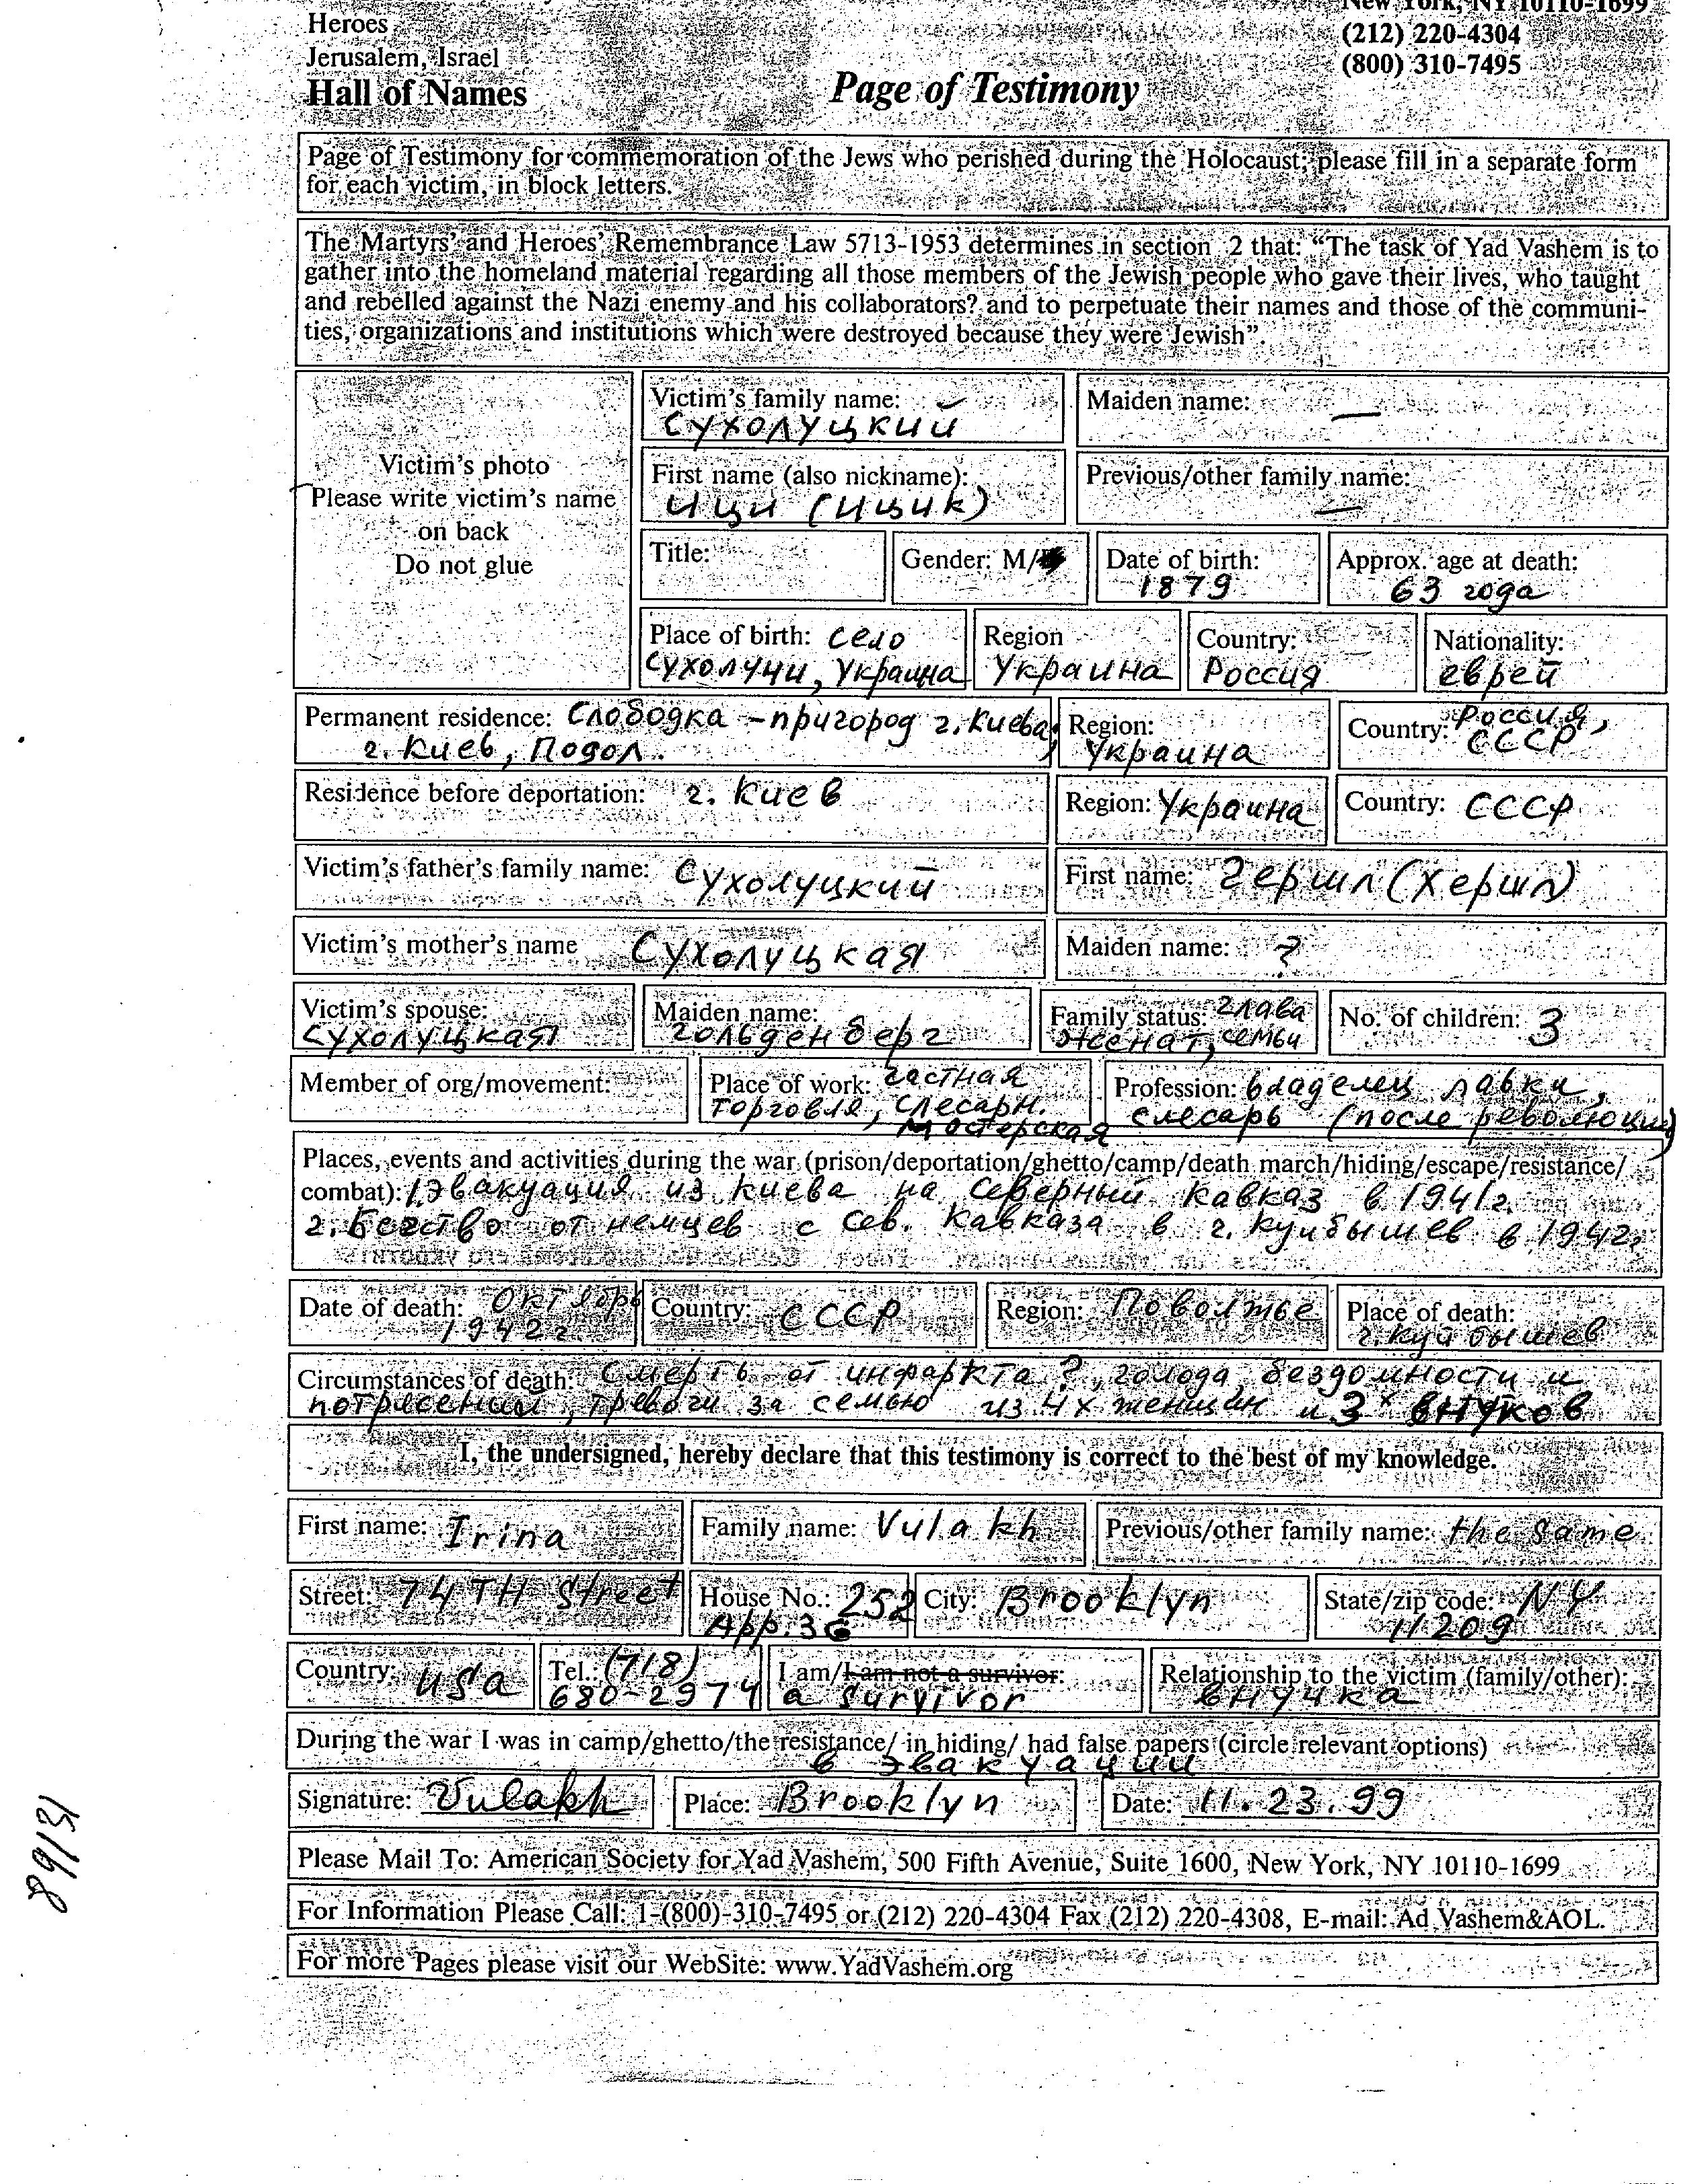 Heroes
Jerusalem, Israel
Hall of Names
New York, NY 10110-1699
(212) 220-4304
(800) 310-7495
Page of Testimony
Page of Testimony for commemoration of the Jews who perished during the Holocaust; please fill in a separate form
for each victim, in block letters.
The Martyrs' and Heroes' Remembrance Law 5713-1953 determines in section 2 that: “The task of Yad Vashem is to
gather into the homeland material regarding all those members of the Jewish people who gave their lives, who taught
and rebelled against the Nazi enemy and his collaborators? and to perpetuate their names and those of the communi-
ties, organizations and institutions which were destroyed because they were Jewish”.
Victim's photo
Please write victim's name
on back
Do not glue
Victim's family name:
Сухолуцкий
Maiden name: —
First name (also nickname):
Ици (Ицик)
Previous/other family name:
—
Title:
Gender: M/
Date of birth:
1879
Approx. age at death:
63 года
Place of birth: село
Сухолучи, Украина
Region
Украина
Country:
Россия
Nationality:
еврей
Permanent residence: Слободка – пригород г. Киева,
г. Киев, Подол.
Region:
Украина
Country: Россия,
СССР
Residence before deportation: г. Киев
Region: Украина
Country: СССР
Victim's father's family name: Сухолуцкий
First name: Гершл (Хершл)
Victim's mother's name Сухолуцкая
Maiden name: ?
Victim's spouse:
Сухолуцкая
Maiden name:
Гольденберг
Family status: глава
женат, семьи
No. of children: 3
Member of org/movement:
Place of work: частная
торговля, слесарн.
мастерская
Profession: владелец лавки,
слесарь (после революции)
Places, events and activities during the war (prison/deportation/ghetto/camp/death march/hiding/escape/resistance/
combat): 1. Эвакуация из Киева на Северный Кавказ в 1941г.
2. Бегство от немцев с Сев. Кавказа в г. Куйбышев в 1942г.
Date of death: Октябрь
1942г
Country: СССР
Region: Поволжье
Place of death:
г. Куйбышев
Circumstances of death: Смерть от инфаркта ?, голода, бездомности и
потрясений, тревоги за семью из 4х женщин и 3х внуков
I, the undersigned, hereby declare that this testimony is correct to the best of my knowledge.
First name: Irina
Family name: Vulakh
Previous/other family name: the same
Street: 74TH Street
House No.: 252
App. 3G
City: Brooklyn
State/zip code: NY
11209
Country: USA
Tel.: (718)
680-2974
I am/I am not a survivor:
a survivor
Relationship to the victim (family/other):
внучка
During the war I was in camp/ghetto/the resistance/ in hiding/ had false papers (circle relevant options)
в эвакуации
Signature: Vulakh
Place: Brooklyn
Date: 11.23.99
Please Mail To: American Society for Yad Vashem, 500 Fifth Avenue, Suite 1600, New York, NY 10110-1699
For Information Please Call: 1-(800)-310-7495 or (212) 220-4304 Fax (212) 220-4308, E-mail: Ad Vashem&AOL.
For more Pages please visit our WebSite: www.YadVashem.org